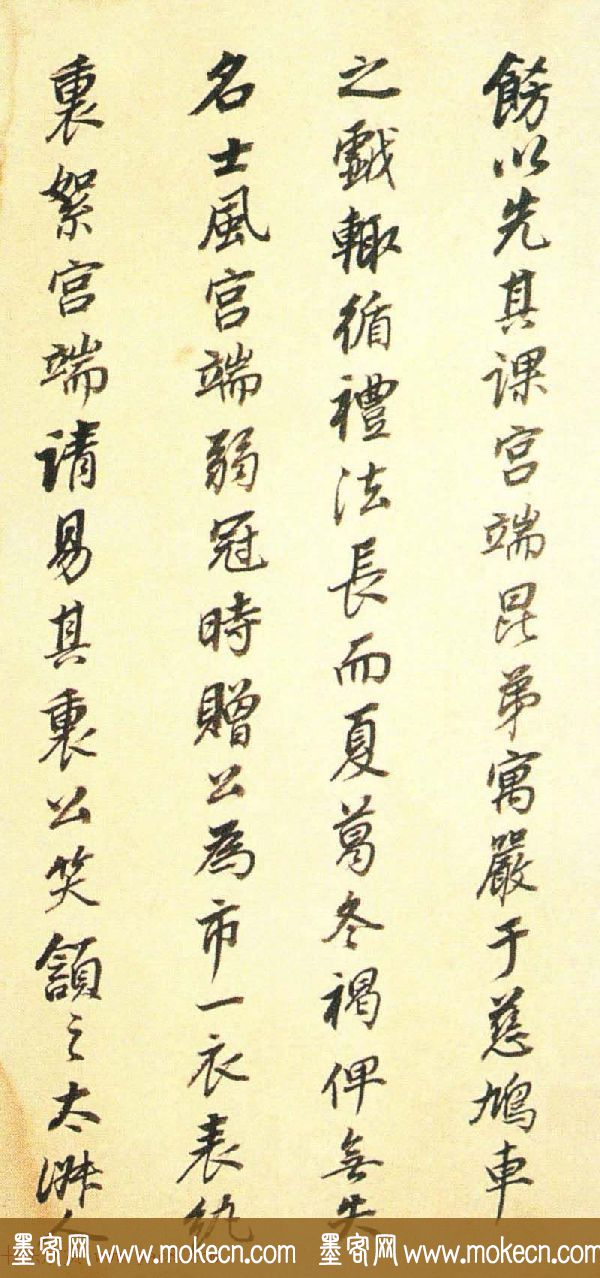 餝以先其課宫端昆弟寓嚴于慈鳩車
之戲輙循禮法長而夏葛冬褐俾無失
名士風宫端弱冠時贈公為市一衣表紈
裏絮宫端請易其裏公笑頷之太淑人
墨客网 www.mokecn.com 墨客网 www.mokecn.com